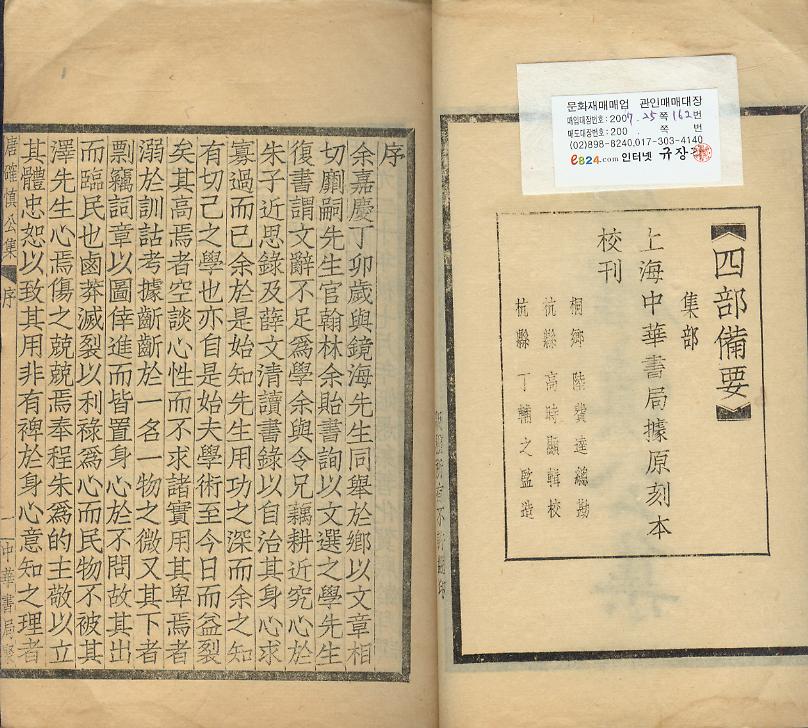 문화재매매업 관인매매대장
매입대장번호:2009.25쪽162번
매도대장번호:200 . 쪽 번
(02)898-8240,017-303-4140
e824.com 인터넷 규장각
四部備要
集部
上海中華書局據原刻本
校刊
桐鄉 陸費逵總勘
杭縣 高時顯輯校
杭縣 丁輔之監造
序
余嘉慶丁卯歲與鏡海先生同舉於鄉以文章相
切劘嗣先生官翰林余貽書詢以文選之學先生
復書謂文辭不足爲學余與令兄藕耕近究心於
朱子近思錄及薛文清讀書錄以自治其身心求
寡過而已余於是始知先生用功之深而余之知
有切己之學也亦自是始夫學術至今日而益裂
矣其高焉者空談心性而不求諸實用其卑焉者
溺於訓詁考據斷斷於一名一物之微又其下者
剽竊詞章以圖倖進而皆置身心於不問故其出
而臨民也鹵莽滅裂以利祿爲心而民物不被其
澤先生心焉傷之兢兢焉奉程朱爲的主敬以立
其體忠恕以致其用非有裨於身心意知之理者
唐確愼公集 序 一 中華書局聚